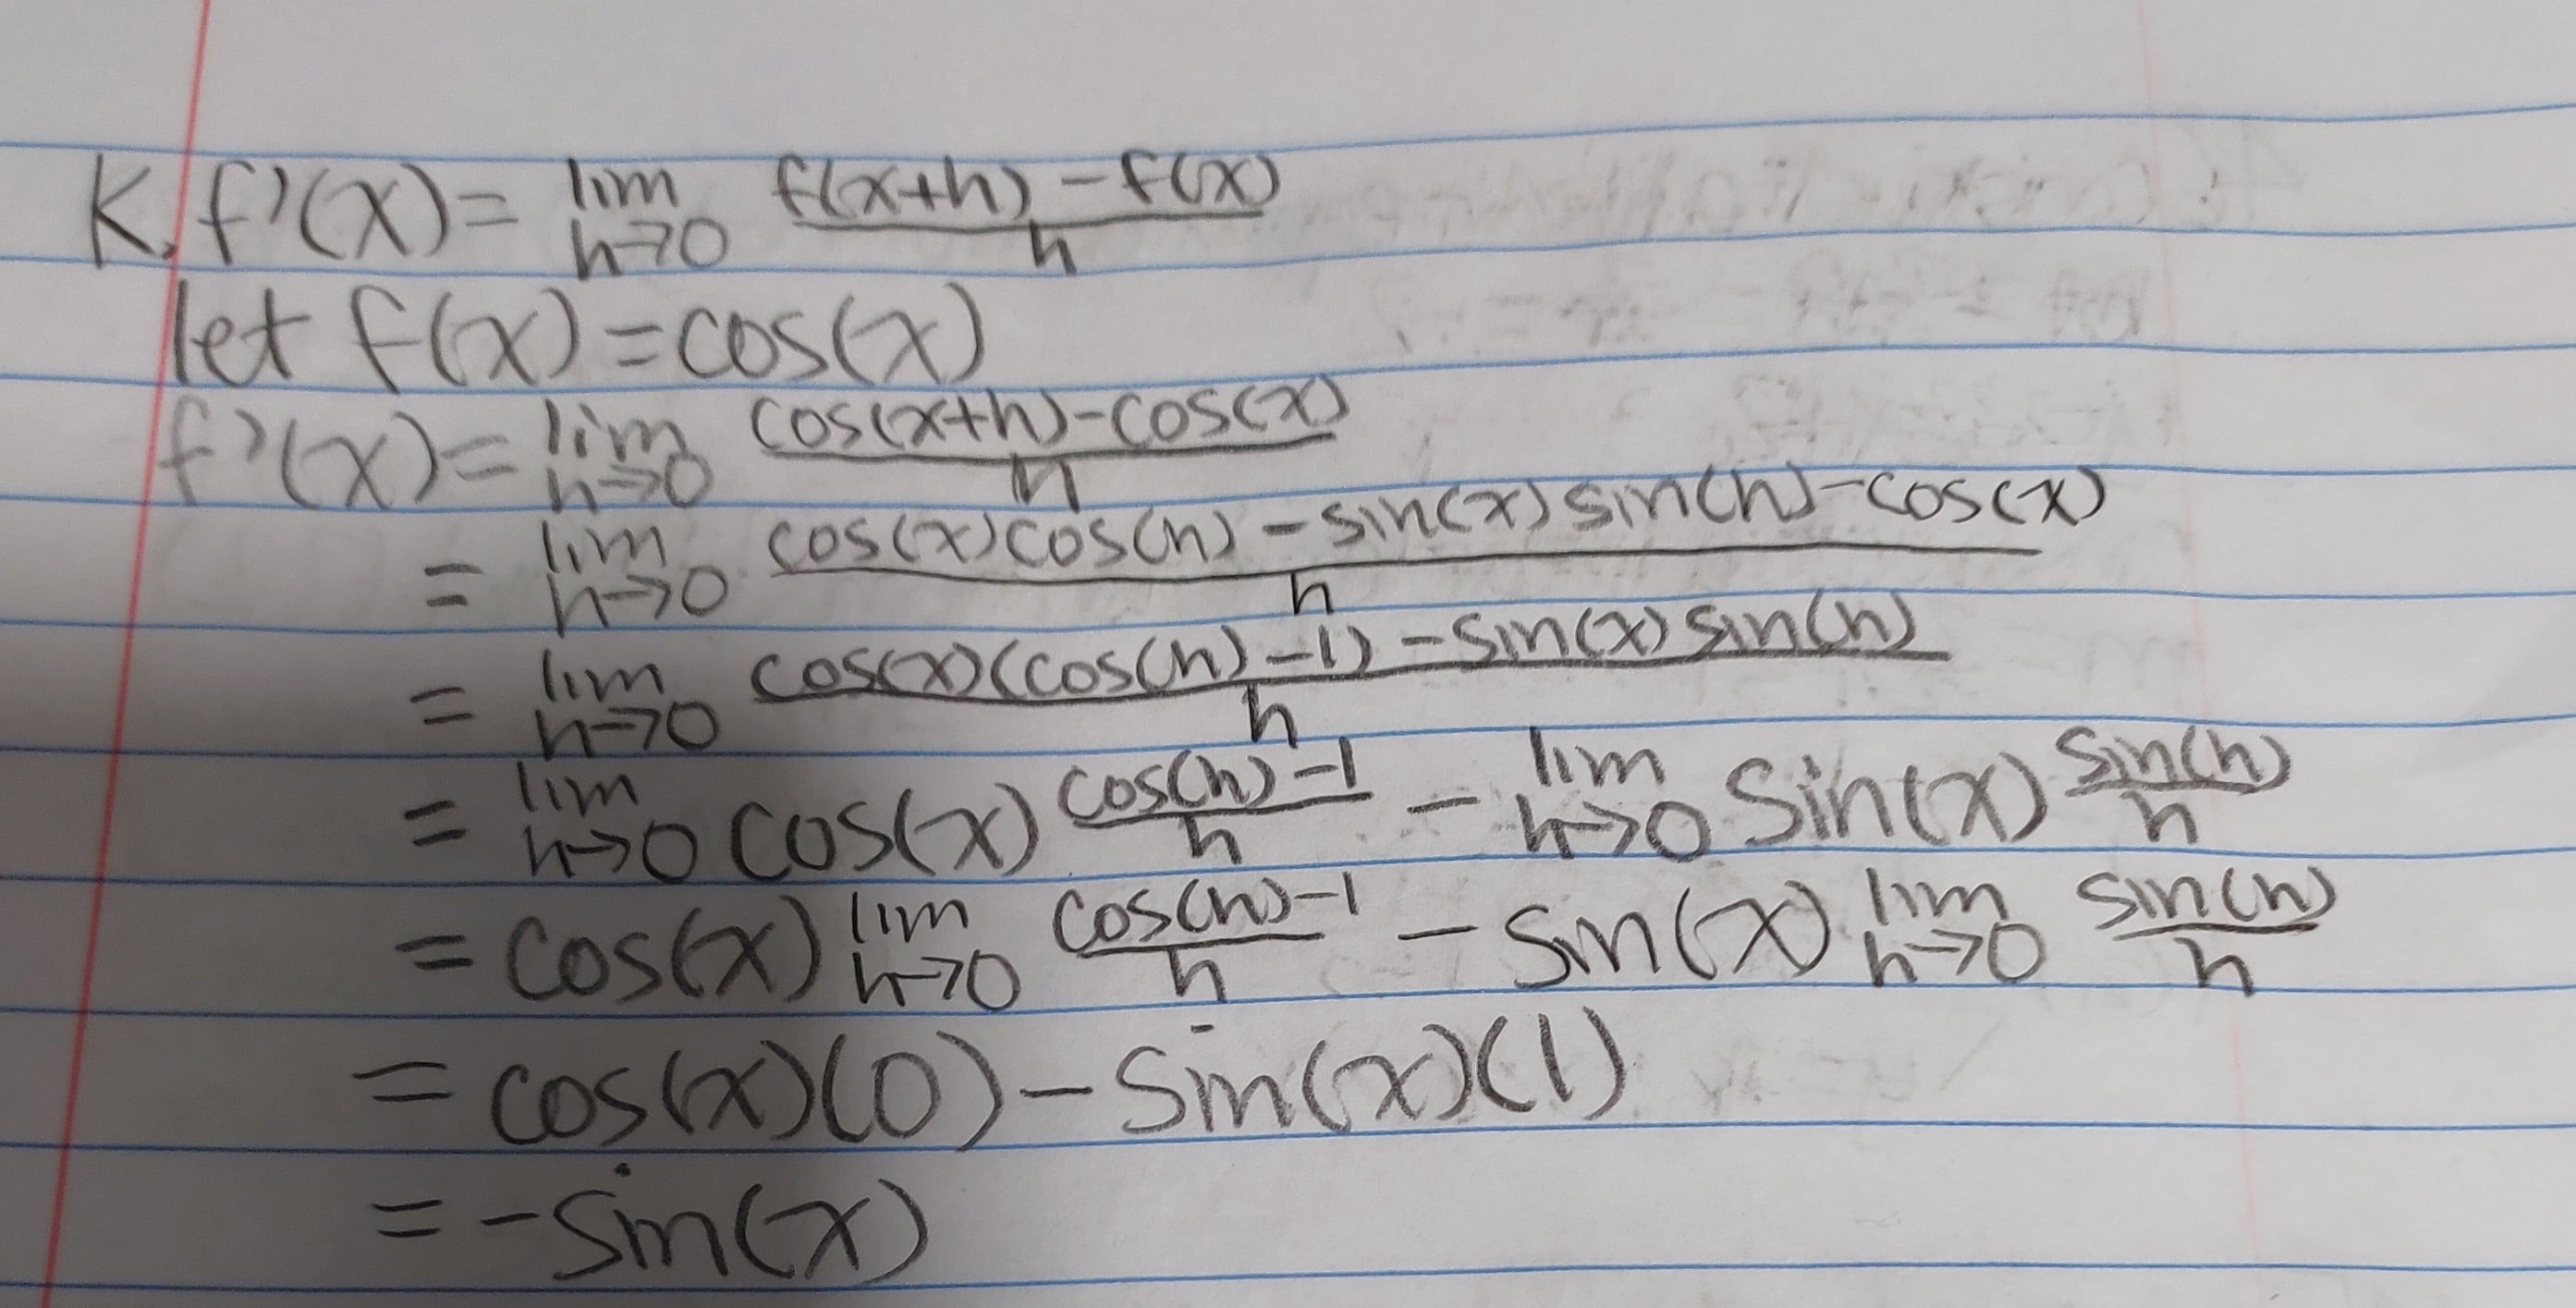 K. f'(x) = lim h→0 (f(x+h) - f(x))/h
let f(x) = cos(x)
f'(x) = lim h→0 (cos(x+h) - cos(x))/h
= lim h→0 (cos(x)cos(h) - sin(x)sin(h) - cos(x))/h
= lim h→0 (cos(x)(cos(h) - 1) - sin(x)sin(h))/h
= lim h→0 cos(x) (cos(h) - 1)/h - lim h→0 sin(x) sin(h)/h
= cos(x) lim h→0 (cos(h) - 1)/h - sin(x) lim h→0 sin(h)/h
= cos(x)(0) - sin(x)(1)
= -sin(x)